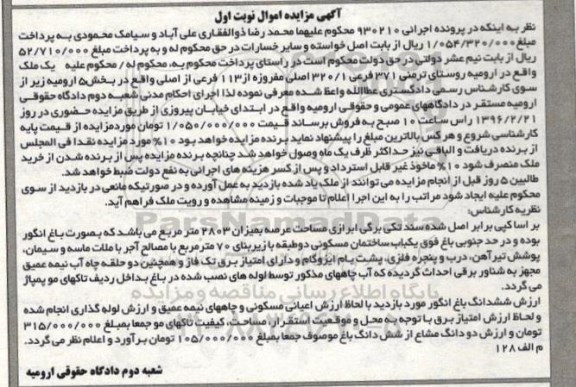 آگهی مزایده اموال نوبت اول
نظر به اینکه در پرونده اجرائی ۹۳۰۲۱۰ محکوم علیهما محمد رضا ذوالفقاری علی آباد و سیامک محمودی به پرداخت
مبلغ ۱/۰۵۴/۳۲۰/۰۰۰ ریال از بابت اصل خواسته و سایر خسارات در حق محکوم له و به پرداخت مبلغ ۵۲/۷۱۰/۰۰۰
ریال از بابت نیم عشر دولتی در حق دولت محکوم است در راستای پرداخت محکوم به، محکوم له / محکوم علیه یک ملک
واقع در ارومیه روستای ترمنی ۳۷۱ فرعی ۳۲۰/۱ اصلی مفروزه از ۱۱۳ فرعی از اصلی واقع در بخش ۵ ارومیه زیر از
سوی کارشناس رسمی دادگستری عطاالله واعظ شده معرفی نموده لذا اجرای احکام مدنی شعبه دوم دادگاه حقوقی
ارومیه مستقر در دادگاههای عمومی و حقوقی ارومیه واقع در ابتدای خیابان پیروزی از طریق مزایده حضوری در روز
۱۳۹۶/۲/۲۱ راس ساعت ۱۰ صبح به فروش برساند قیمت ۱/۰۵۰/۰۰۰/۰۰۰ تومان مورد مزایده از قیمت پایه
کارشناسی شروع و هر کس بالاترین مبلغ را پیشنهاد نماید برنده مزایده خواهد بود ۱۰% مورد مزایده نقدا فی المجلس
از برنده دریافت و الباقی نیز حداکثر ظرف یک ماه وصول خواهد شد چنانچه برنده مزایده پس از برنده شدن از خرید
ملک منصرف شود ۱۰% ماخوذ غیر قابل استرداد و پس از کسر هزینه های اجرائی به نفع دولت ضبط خواهد شد.
طالبین ۵ روز قبل از انجام مزایده می توانند از ملک یاد شده بازدید به عمل آورده و در صورتیکه مانعی در بازدید از سوی
محکوم علیه ایجاد شود مراتب را به این اجرا اعلام تا موجبات و زمینه مشاهده و رویت ملک فراهم آید.
نظریه کارشناس:
بر اساس کپی برابر اصل شده سند تکی برگی ابرازی مساحت عرصه بمیزان ۲۸۰۳ متر مربع می باشد که بصورت باغ انگور
بوده و در حد جنوبی باغ فوق یکباب ساختمان مسکونی دوطبقه با زیربنای ۷۰ مترمربع با مصالح آجر با ملات ماسه و سیمان،
پوشش تیرآهن، درب و پنجره فلزی، پشت بام ایزوگام و دارای امتیاز برق تک فاز و همچنین دو حلقه چاه آب نیمه عمیق
مجهز به شناور برقی احداث گردیده که آب چاههای مذکور توسط لوله های نصب شده در باغ بداخل ردیف تاکهای مو پمپاژ
می گردد.
ارزش ششدانگ باغ انگور مورد بازدید با لحاظ ارزش اعیانی مسکونی و چاههای نیمه عمیق و ارزش لوله گذاری انجام شده
و لحاظ ارزش امتیاز برق با توجه به محل و موقعیت استقرار، مساحت، کیفیت تاکهای مو جمعا بمبلغ ۳۱۵/۰۰۰/۰۰۰
تومان و ارزش دو دانگ مشاع از شش دانگ باغ موصوف جمعا بمبلغ ۱۰۵/۰۰۰/۰۰۰ تومان برآورد و اعلام نظر می گردد.
م الف ۱۲۸
شعبه دوم دادگاه حقوقی ارومیه
ParsNamadData
پایگاه اطلاع رسانی مناقصه و مزایده